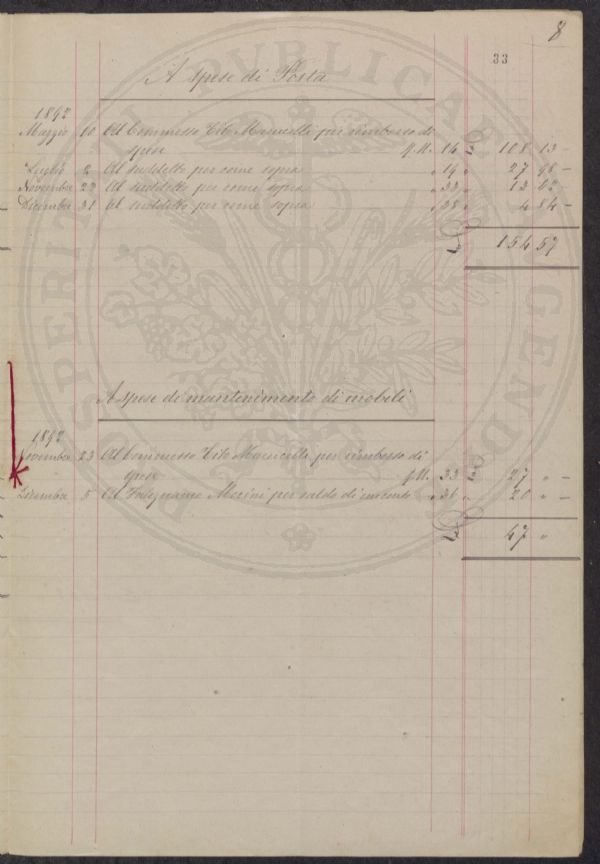 8
33
A spese di Posta
1892
Maggio 10 Al Commesso Tito per rimborso di
spese f. M. 14 108 13 -
Luglio 2 Al suddetto per come sopra " 19 " 27 98 -
Novembre 22 Al suddetto per come sopra " 33 " 13 62 -
Dicembre 31 Al suddetto per come sopra " 38 " 4 84 -
154 57
A spese di mantenimento di mobili
1892
Novembre 23 Al Commesso Tito per rimborso di
spese f. M. 33 27 " -
Dicembre 5 Al Falegname Morini per saldo di " 36 " 20 " -
47 "
PROSPERITATI PVBLICAE AVGENDAE